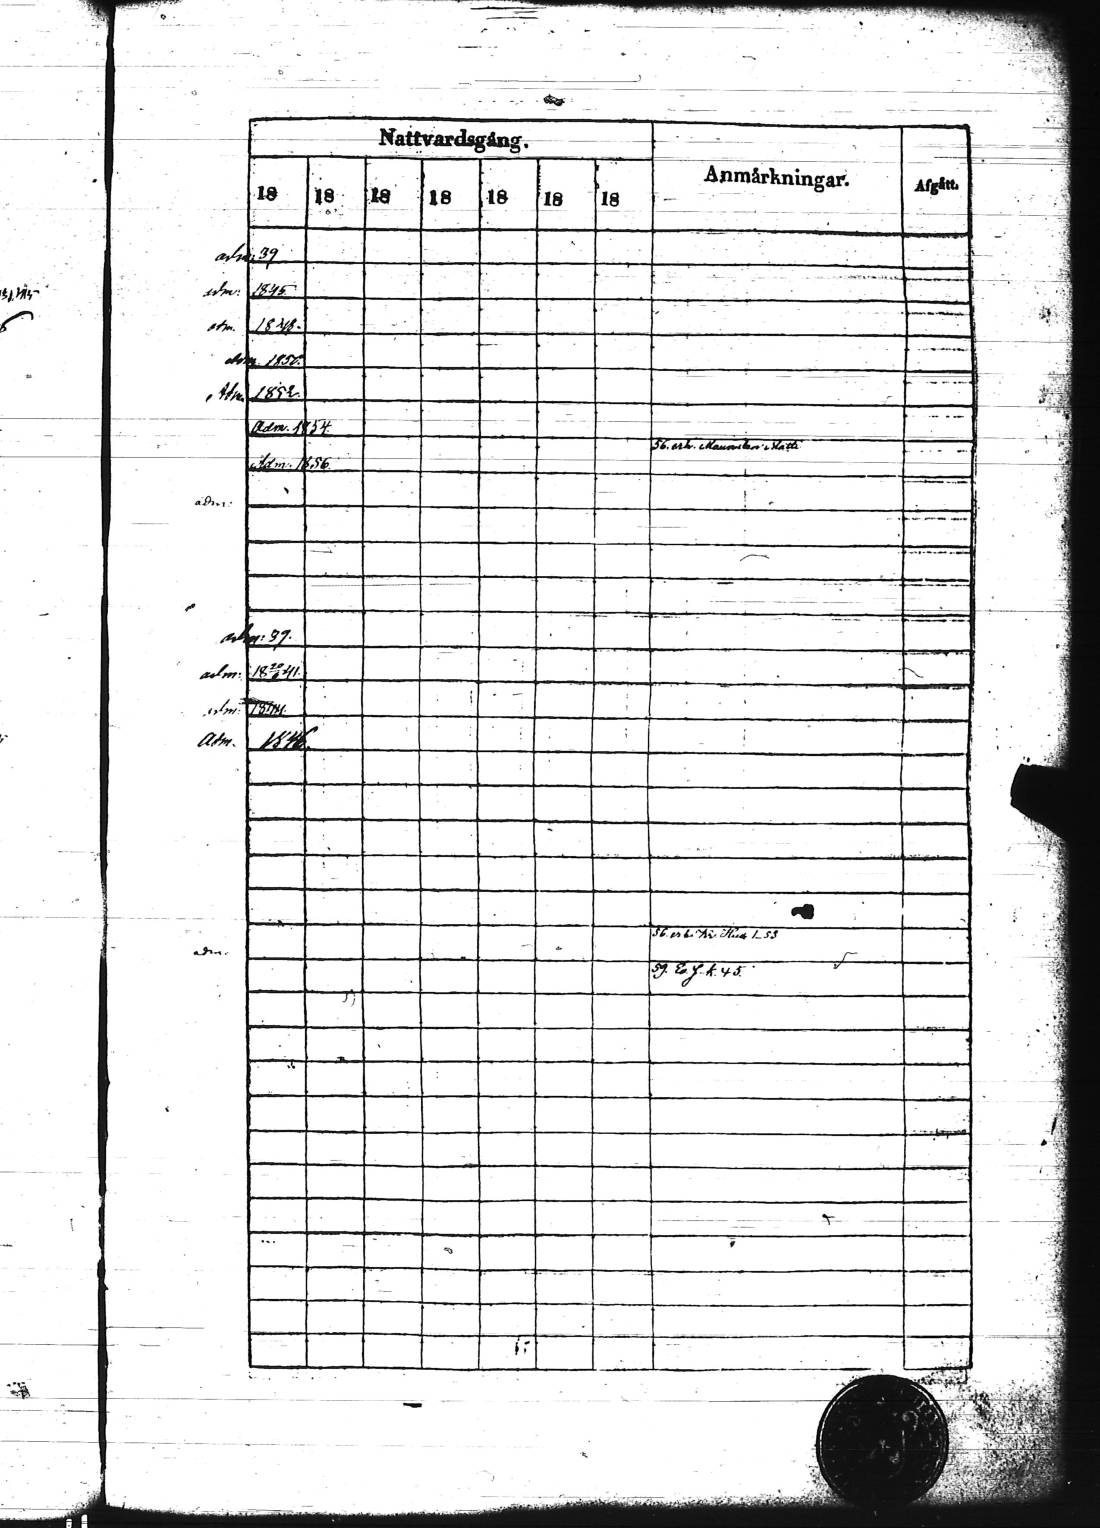 Nattvardsgång.
Anmärkningar.
Afgått.
18 18 18 18 18 18 18
adm: 39
adm: 1845.
adm. 1848.
adm. 1850.
Adm. 1852.
Adm. 1854.
56. erh.
Adm. 1856.
adm:
adm: 39.
adm: 18 20/6 41.
adm: 1844.
Adm. 1846.
56. erh. 1 53
adm:
59. k. 45.